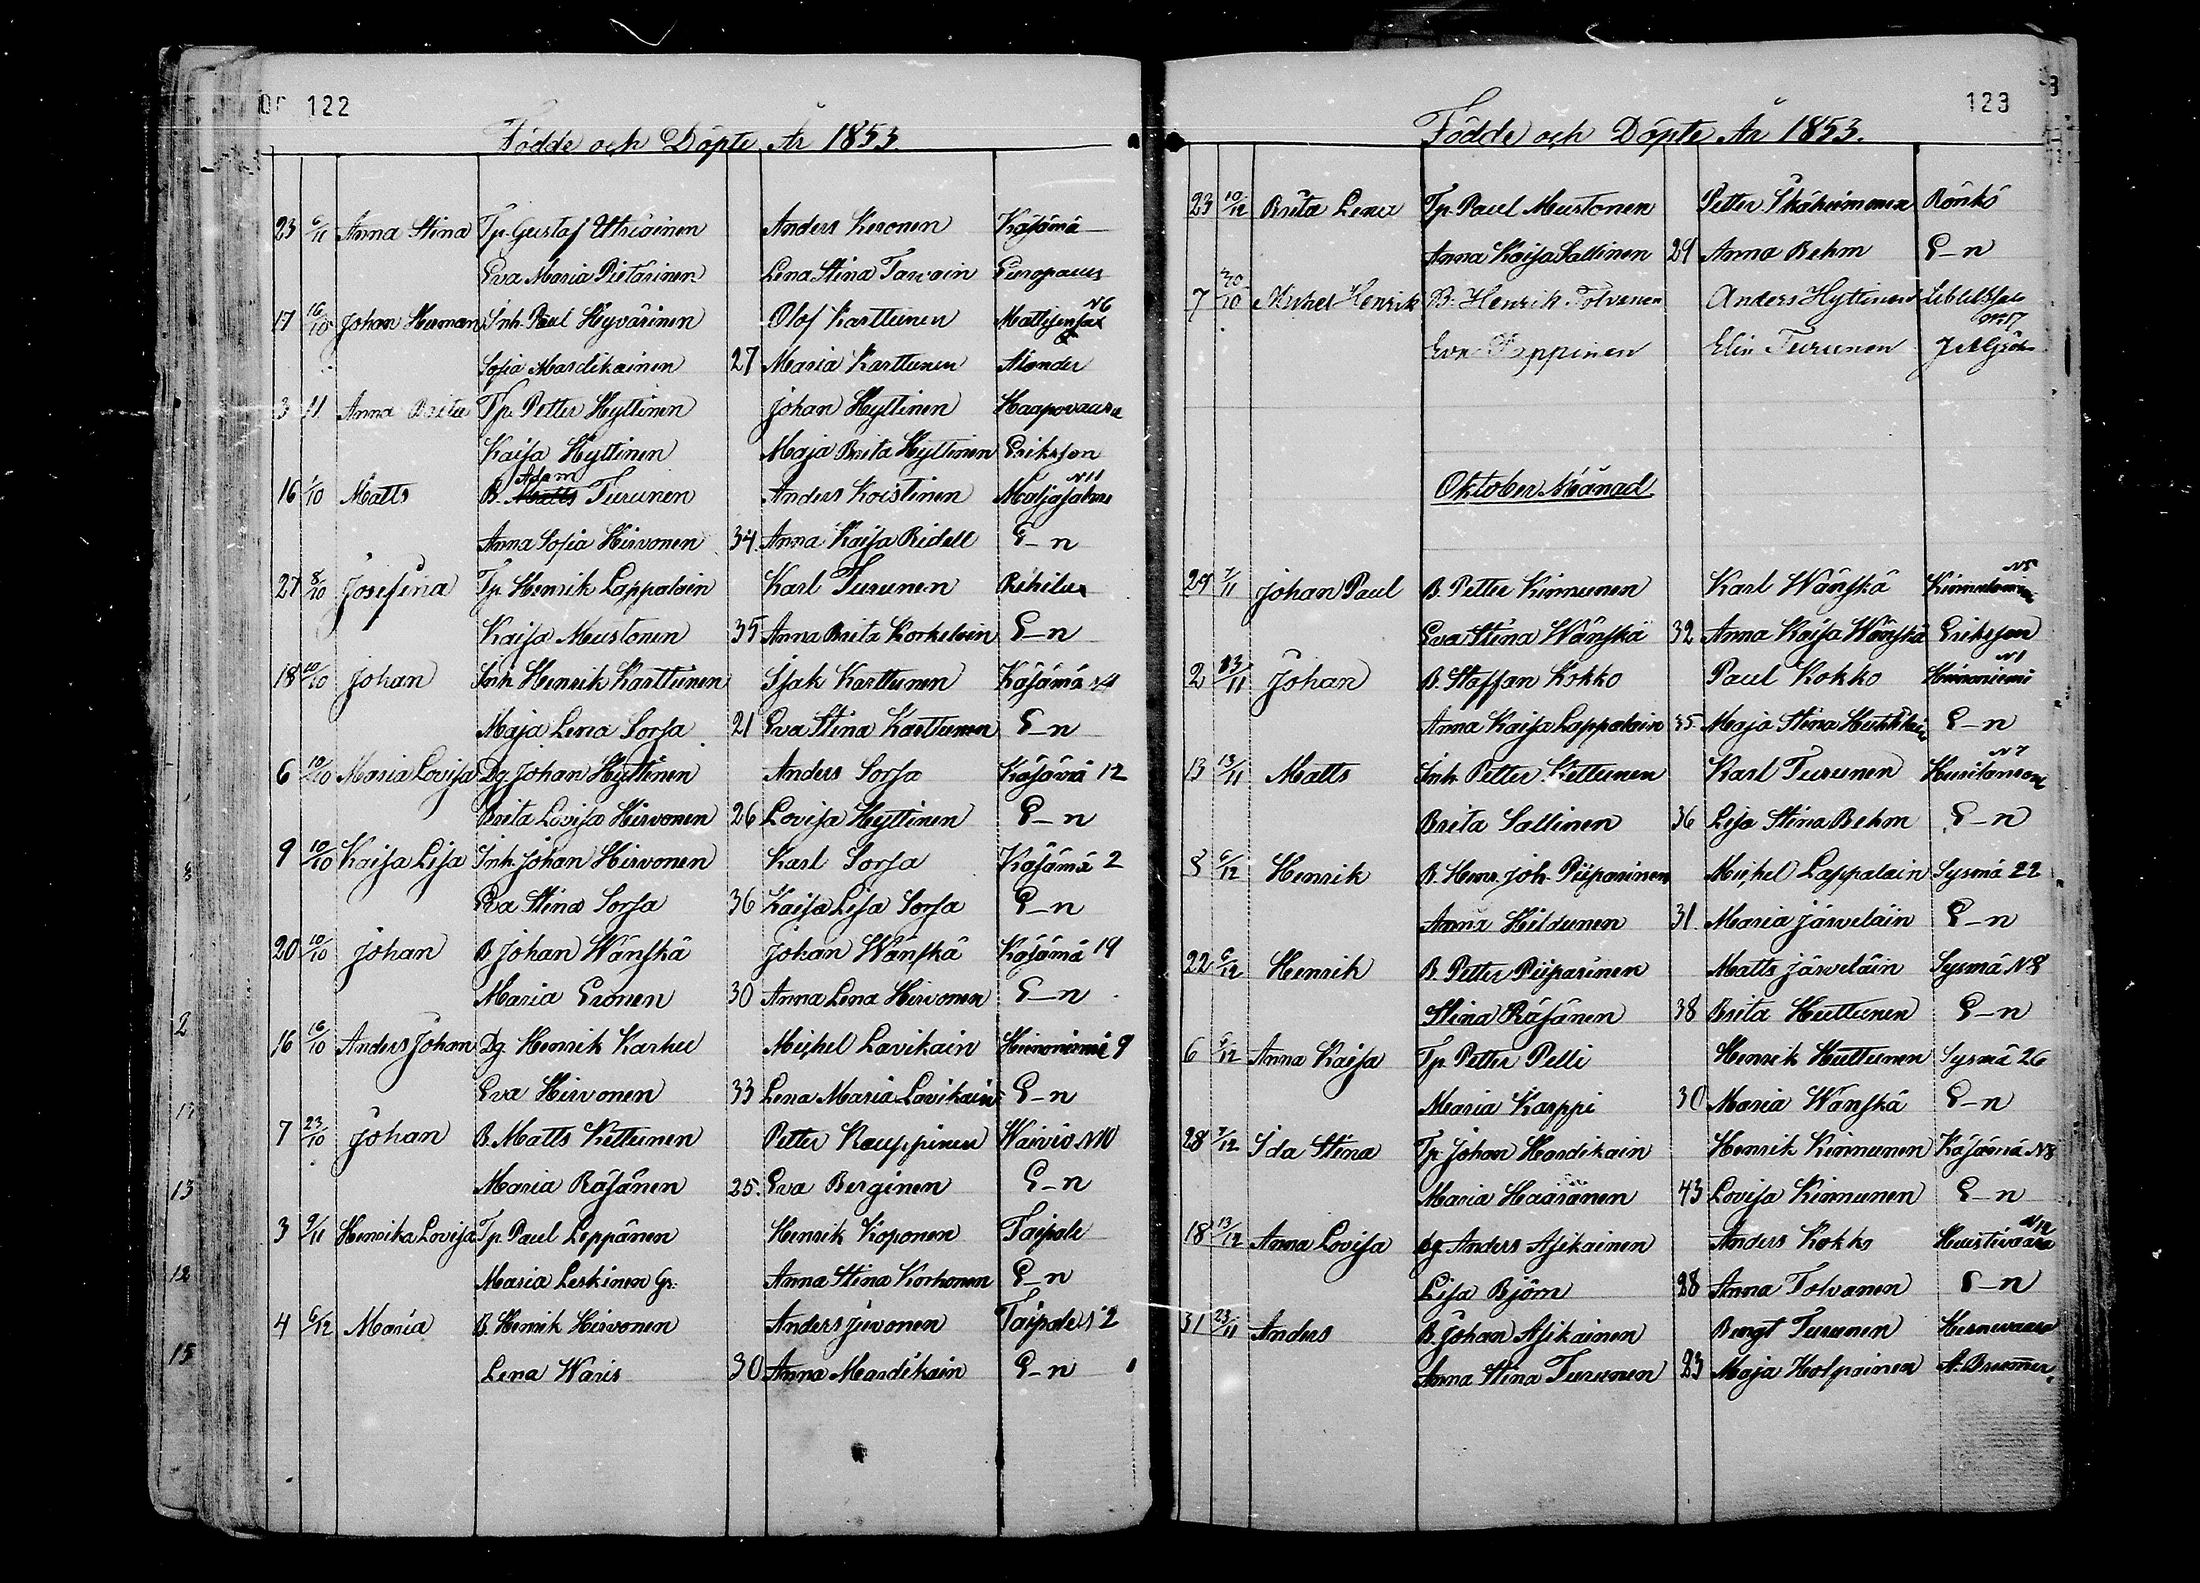 122
Födde och Döpte År 1853.
23 6/11 Anna Stina Tp. Gustaf Utriainen Anders Keronen Käsämä
Eva Maria Pietarinen Lena Stina Tarvain Europaeus
17 16/10 Johan Herman Inh. Paul Hyvärinen Olof Karttunen N6
Sofia Mardikainen 27 Maria Karttunen Alander
3 /11 Anna Brita Tp. Petter Hyttinen Johan Hyttinen Haapovaara
Kaisa Hyttinen Maja Brita Hyttinen Eriksson
16 1/10 Matts B. Adam Turunen Anders Koistinen N11
Anna Sofia Hirvonen 34 Anna Kaisa Ridell E-n
27 8/10 Josefina Tp. Henrik Lappalain Karl Turunen
Kaisa Mustonen 35 Anna Brita Korkelain E-n
18 10/10 Johan Inh. Henrik Karttunen Isak Karttunen Käsämä 14
Maja Lena Sorsa 21 Eva Stina Karttunen E-n
6 10/10 Maria Lovisa Dg. Johan Hyttinen Anders Sorsa Käsämä 12
Brita Lovisa Hirvonen 26 Lovisa Hyttinen E-n
9 10/10 Kaisa Lisa Inh. Johan Hirvonen Karl Sorsa Käsämä 2
Eva Stina Sorsa 36 Kaisa Lisa Sorsa E-n
20 10/10 Johan B. Johan Wänskä Johan Wänskä Käsämä 19
Maria Eronen 30 Anna Lena Hirvonen E-n
16 16/10 Anders Johan Dg. Henrik Karhu Michel Lavikain Hinoniemi 9
Eva Hirvonen 33 Lena Maria Lavikain E-n
7 23/10 Johan B. Matts Kettunen Petter Kauppinen Waivio N10
Maria Räsänen 25. Eva Berginen E-n
3 9/11 Henrika Lovisa Tp. Paul Leppänen Henrik Koponen Taipale
Maria Leskinen Anna Stina Korhonen E-n
4 6/12 Maria B. Henrik Hirvonen Anders Juvonen Taipale 12
Lena Waris 30 Anna Mardikain E-n
123
Födde och Döpte År 1853.
23 10/12 Brita Lena Tp. Paul Mustonen Petter Ikäheimonen Rönkö
Anna Kaisa Sallinen 29 Anna Behm E-n
7 30/10 Michel Henrik B. Henrik Tolvanen Anders Hyttinen
Eva Elin Turunen
Oktober Månad
29 7/11 Johan Paul B. Petter Kinnunen Karl Wänskä N5
Eva Stina Wänskä 32 Anna Kaisa Wänskä Eriksson
2 13/11 Johan B. Staffan Kokko Paul Kokko N1 Hinoniemi
Anna Kaisa Lappalain 35 Maja Stina E-n
13 13/11 Matts Inh. Petter Kettunen Karl Turunen N7
Brita Sallinen 36 Lisa Stina Behm E-n
8 6/12 Henrik B. Henr. Joh. Piiparinen Michel Lappalain Sysmä 22
Anna Hildunen 31. Maria Järveläin E-n
22 6/12 Henrik B. Petter Piiparinen Matts Järveläin Sysmä N8
Stina Räsänen 38 Brita Huttunen E-n
6 6/12 Anna Kaisa Tp. Petter Pelli Henrik Huttunen Sysmä 26
Maria Karppi 30 Maria Wänskä E-n
28 7/12 Ida Stina Tp. Johan Mardikain Henrik Kinnunen Käsämä N8
Maria Haaranen 43 Lovisa Kinnunen E-n
18 13/12 Anna Lovisa Dg. Anders Asikainen Anders Kokko N12
Lisa Björn 28 Anna Tolvanen E-n
31 23/11 Anders B. Johan Asikainen Bengt Turunen Hernevaara
Anna Stina Turunen 23 Maja Holpainen A. Brummer